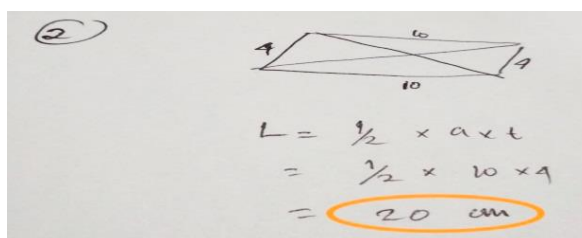 2
10
4
4
10
L = 1/2 × a × t
= 1/2 × 10 × 4
= 20 cm